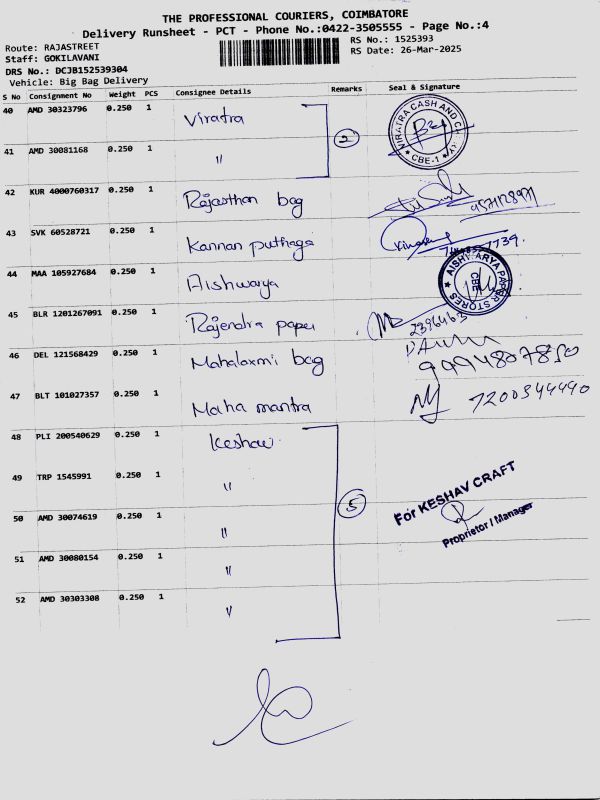 THE PROFESSIONAL COURIERS, COIMBATORE
Delivery Runsheet - PCT - Phone No.:0422-3505555 - Page No.:4
Route: RAJASTREET
RS No.: 1525393
Staff: GOKILAVANI
RS Date: 26-Mar-2025
DRS No.: DCJB152539304
Vehicle: Big Bag Delivery
S No Consignment No Weight PCS Consignee Details Remarks Seal & Signature
40 AMD 30323796 0.250 1 Viratra
2
VIRATRA CASH AND CARRY
CBE-1
41 AMD 30081168 0.250 1 "
42 KUR 4000760317 0.250 1 Rajasthan bag
43 SVK 60528721 0.250 1 Kannan puthaga
44 MAA 105927684 0.250 1 Aishwarya
AISHWARYA PAPER STORES
CBE
45 BLR 1201267091 0.250 1 Rajendra paper 2396463
46 DEL 121568429 0.250 1 Mahalaxmi bag
9994807850
47 BLT 101027357 0.250 1 Maha mantra 7200344490
48 PLI 200540629 0.250 1 Keshav
49 TRP 1545991 0.250 1 "
5
For KESHAV CRAFT
Proprietor / Manager
50 AMD 30074619 0.250 1 "
51 AMD 30080154 0.250 1 "
52 AMD 30303308 0.250 1 "